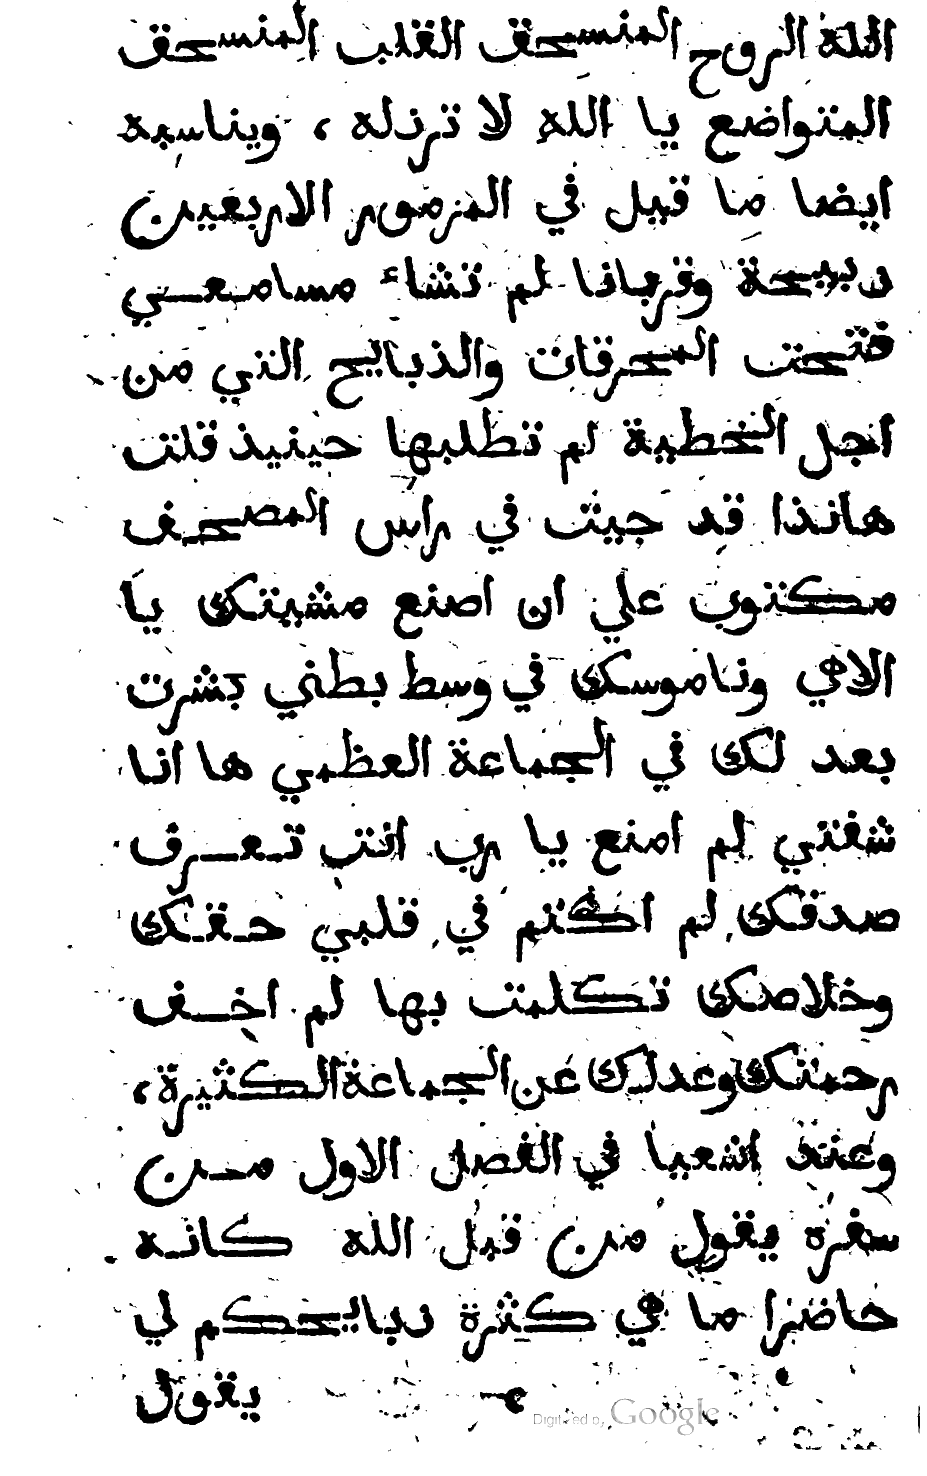 الله الروح المنسحق القلب المنسحق
المتواضع يا الله لا ترذله ، ويناسبه
ايضا ما قيل في المزمور الاربعين
ذبيحة وقربانا لم تشاء مسامعي
فتحت المحرقات والذبايح التي من
اجل الخطية لم تطلبها حينيذ قلت
هانذا قد جيت في راس المصحف
مكتوب علي ان اصنع مشيتك يا
الاهي وناموسك في وسط بطني بشرت
بعد لك في الجماعة العظمي ها انا
شفتي لم امنع يا رب انت تعرف
صدقك لم اكتم في قلبي حقك
وخلاصك تكلمت بها لم اخف
رحمتك وعدلك عن الجماعة الكثيرة ،
وعند اشعيا في الفصل الاول من
سفره يقول من قبل الله كانه
حاضرا ما هي كثرة ذبايحكم لي
يقول
Digitized by Google